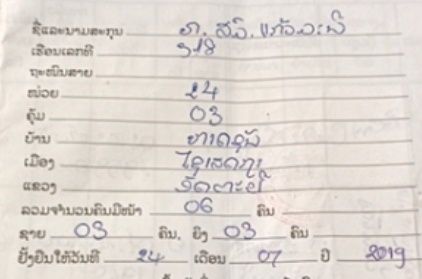 ຊື່ແລະນາມສະກຸນ ທ. ສວິ. ແກ້ວວະພີ
ເຮືອນເລກທີ 318
ຖະໜົນສາຍ
ໜ່ວຍ 24
ຄຸ້ມ 03
ບ້ານ
ເມືອງ ໄຊເສດຖາ
ແຂວງ ອັດຕະປື
ລວມຈຳນວນຄົນມີໜ້າ 06 ຄົນ
ຊາຍ 03 ຄົນ, ຍິງ 03 ຄົນ
ຢັ້ງຢືນໃຫ້ວັນທີ 24 ເດືອນ 07 ປີ 2019